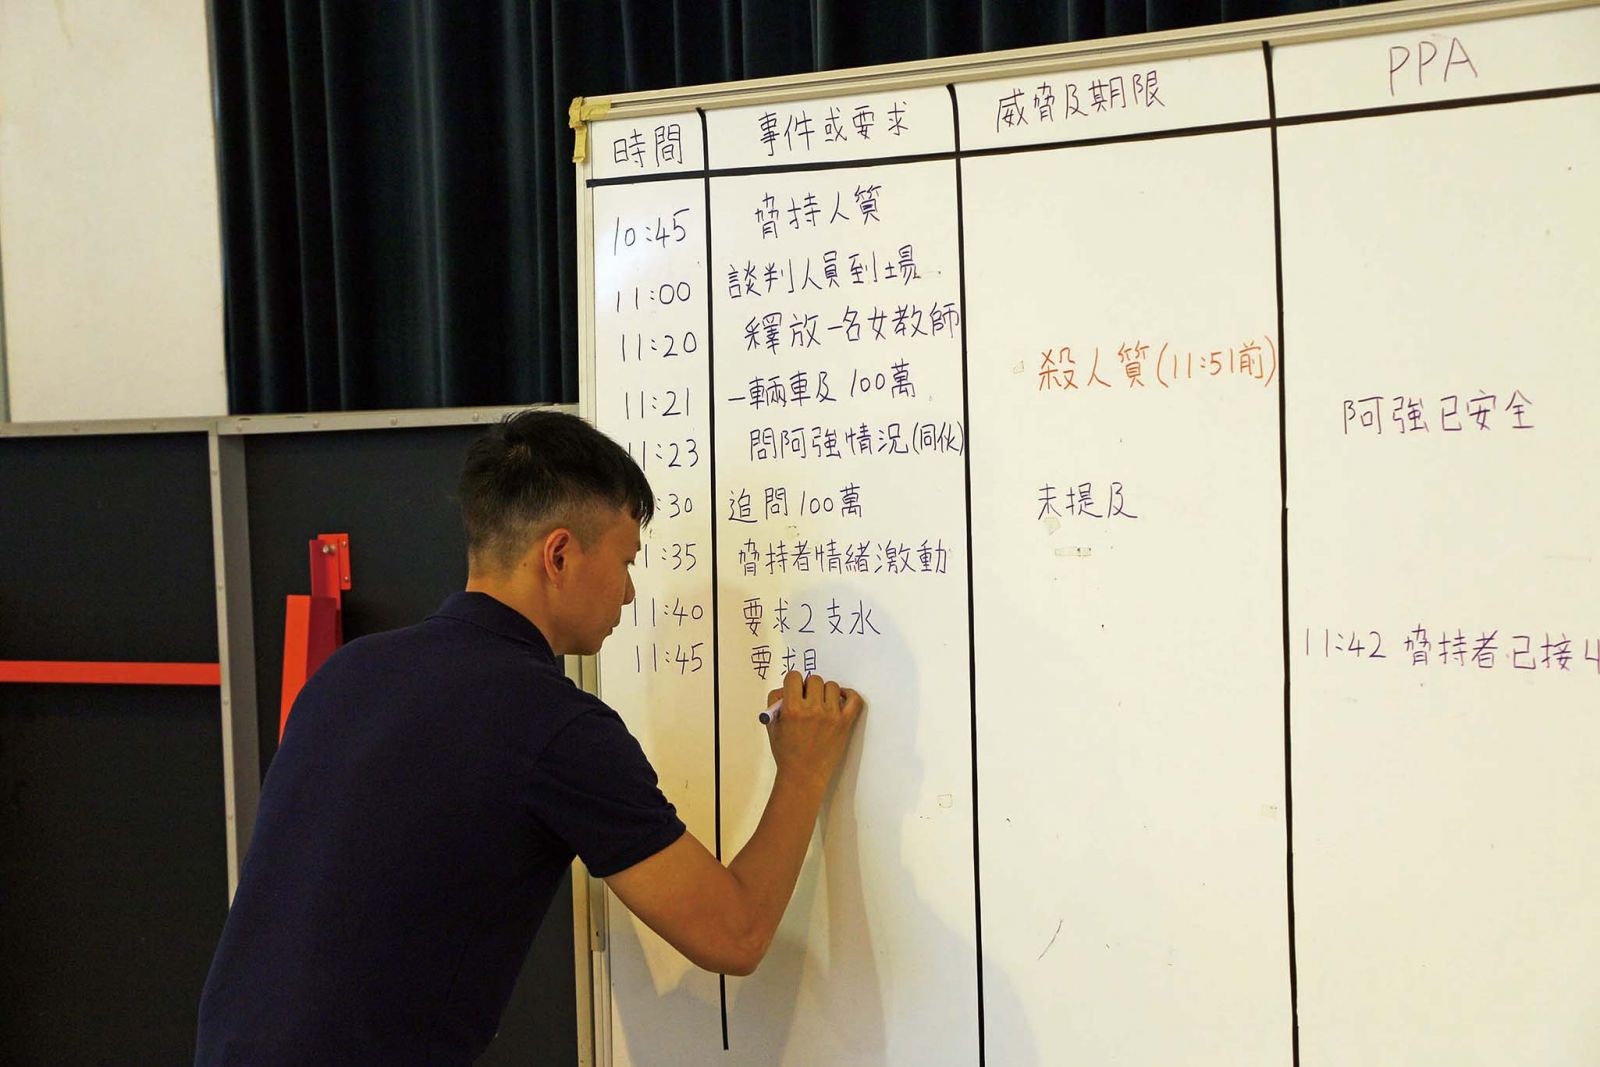 時間 事件或要求 威脅及期限 PPA
10:45 脅持人質
11:00 談判人員到場
11:20 釋放一名女教師
殺人質(11:51前)
11:21 一輛車及100萬
阿強已安全
11:23 問阿強情況(同伙)
:30 追問100萬 未提及
1:35 脅持者情緒激動
11:40 要求2支水
11:42 脅持者已接
11:45 要求見